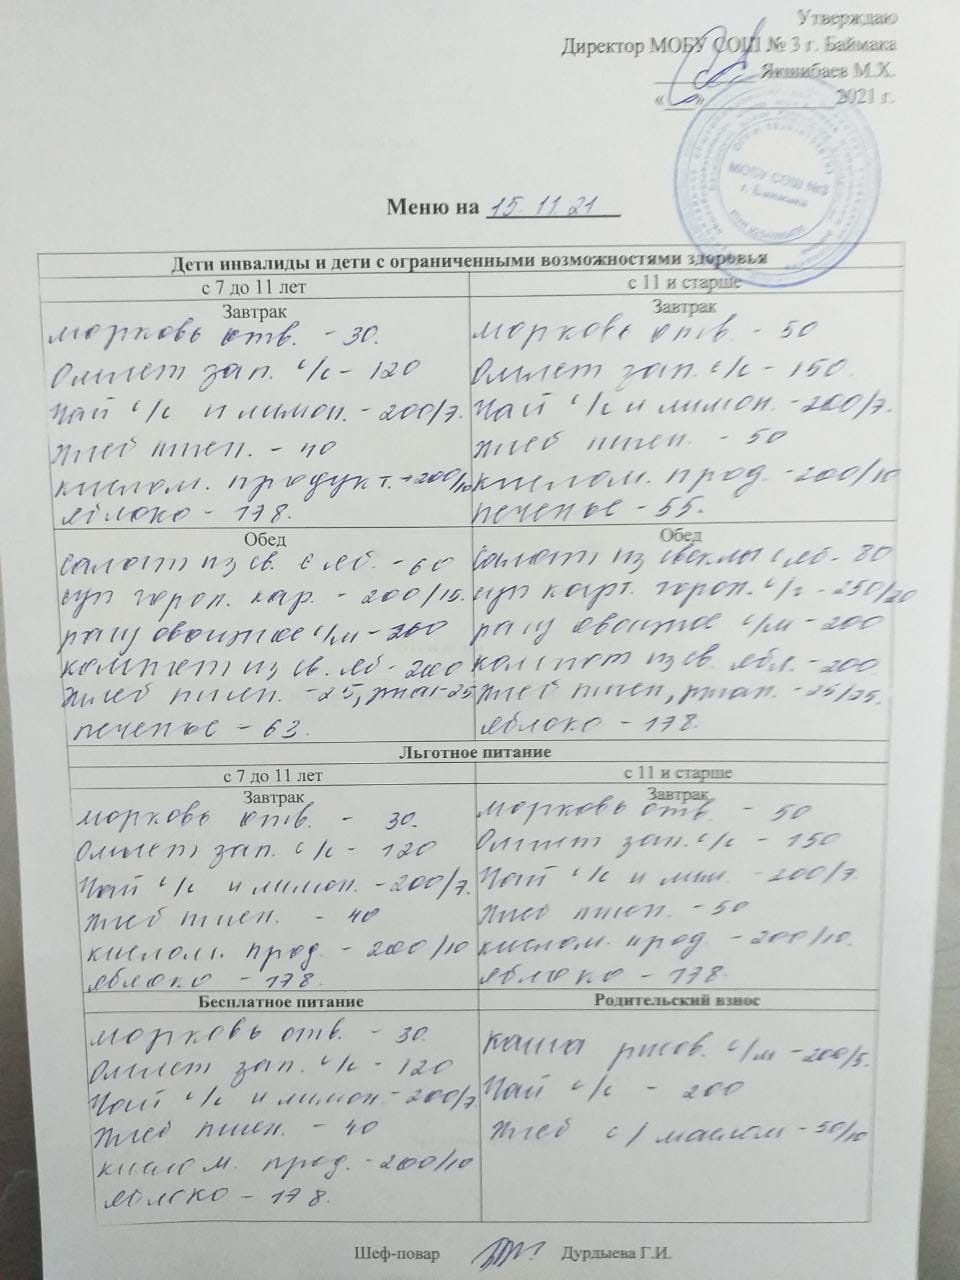 Утверждаю
Директор МОБУ СОШ № 3 г. Баймака
Якшибаев М.Х.
« » 2021 г.
МОБУ СОШ №3
г. Баймака
Меню на 15.11.21
Дети инвалиды и дети с ограниченными возможностями здоровья
с 7 до 11 лет
Завтрак
морковь отв. - 30.
Омлет зап. с/с - 120
Чай с/с и лимон. - 200/7.
Хлеб пшен. - 40
кислом. продукт. - 200/10
яблоко - 178.
с 11 и старше
Завтрак
морковь отв. - 50
Омлет зап. с/с - 150.
Чай с/с и лимон. - 200/7.
Хлеб пшен. - 50
кислом. прод. - 200/10
печенье - 55.
Обед
Салат из св. с яб. - 60
суп горох. кар. - 200/15.
рагу овощное с/м - 200
компот из св. яб - 200
Хлеб пшен. - 25, ржан - 25
печенье - 63.
Обед
Салат из свеклы с яб - 80
суп карт. горох. с/г - 250/20
рагу овощное с/м - 200
компот из св. ябл. - 200.
Хлеб пшен, ржан. - 25/25.
яблоко - 178.
Льготное питание
с 7 до 11 лет
Завтрак
морковь отв. - 30.
Омлет зап. с/с - 120
Чай с/с и лимон. - 200/7.
Хлеб пшен. - 40
кислом. прод. - 200/10
яблоко - 178.
с 11 и старше
Завтрак
морковь отв. - 50
Омлет зап. с/с - 150
Чай с/с и лим. - 200/7.
Хлеб пшен. - 50
кислом. прод. - 200/10.
яблоко - 178.
Бесплатное питание
морковь отв. - 30.
Омлет зап. с/с - 120
Чай с/с и лимон. - 200/7
Хлеб пшен. - 40
кислом. прод. - 200/10
яблоко - 178.
Родительский взнос
каша рисов. с/м - 200/5.
Чай с/с - 200
Хлеб с/маслом - 50/10
Шеф-повар Дурдыева Г.И.